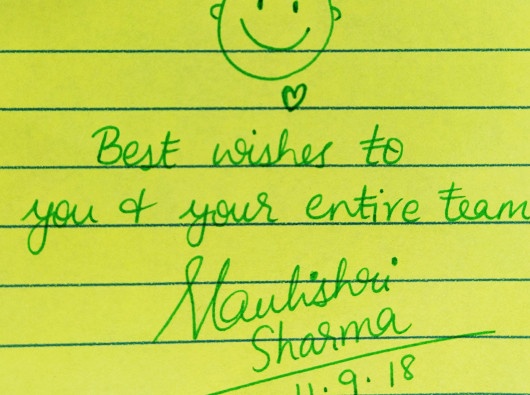 Best wishes to
you & your entire team
Maulishri
Sharma
11.9.18